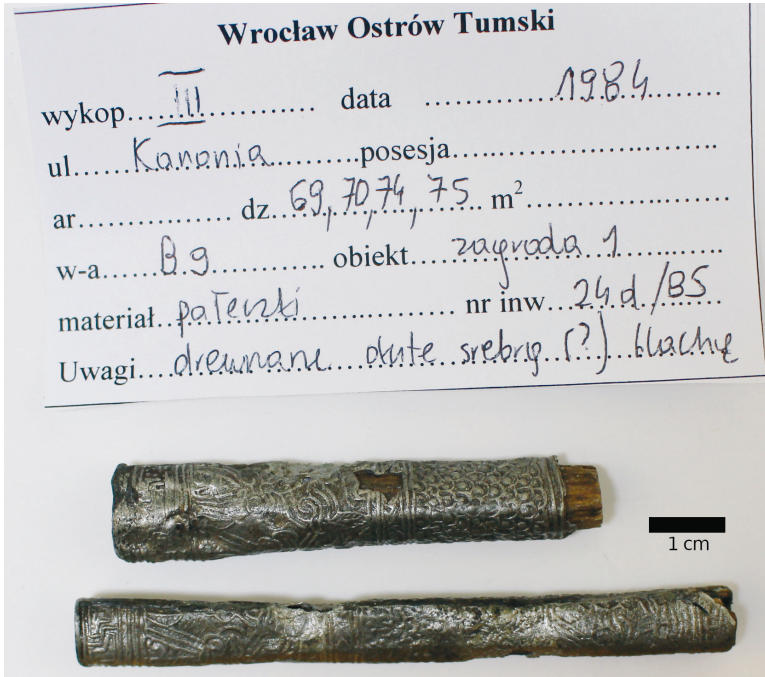 Wrocław Ostrów Tumski
wykop.....III............... data ..............1984.........
ul......Kanonia...........posesja..............................
ar................ dz...69, 70, 74, 75 m².......................
w-a......B9............ obiekt....zagroda 1.............
materiał..pałeczki................... nr inw...24d/85...
Uwagi....drewniane okute srebrną (?) blachą
1 cm